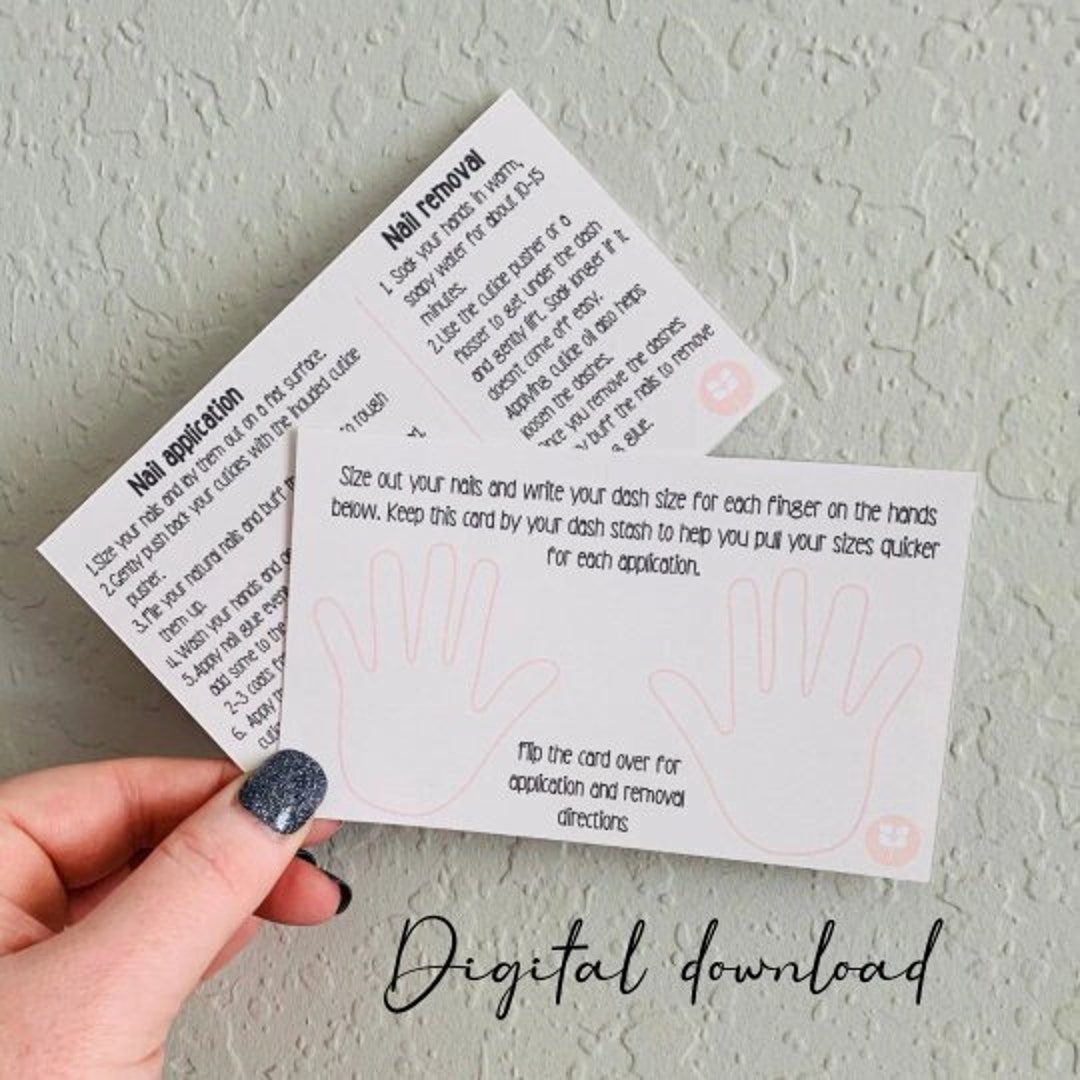 Nail removal
1. Soak your hands in warm,
soapy water for about 10-15
minutes.
2. Use the cuticle pusher or a
flosser to get under the dash
and gently lift. Soak longer if it
doesn't come off easy.
Applying cuticle oil also helps
loosen the dashes.
you remove the dashes
buff the nails to remove
glue.
Nail application
1. Size your nails and lay them out on a flat surface.
2. Gently push back your cuticles with the included cuticle
pusher.
3. File your natural nails and buff rough
them up.
4. Wash your hands and
5. Apply nail glue
add some to the
2-3 coats
6. Apply
Size out your nails and write your dash size for each finger on the hands
below. Keep this card by your dash stash to help you pull your sizes quicker
for each application.
Flip the card over for
application and removal
directions
Digital download